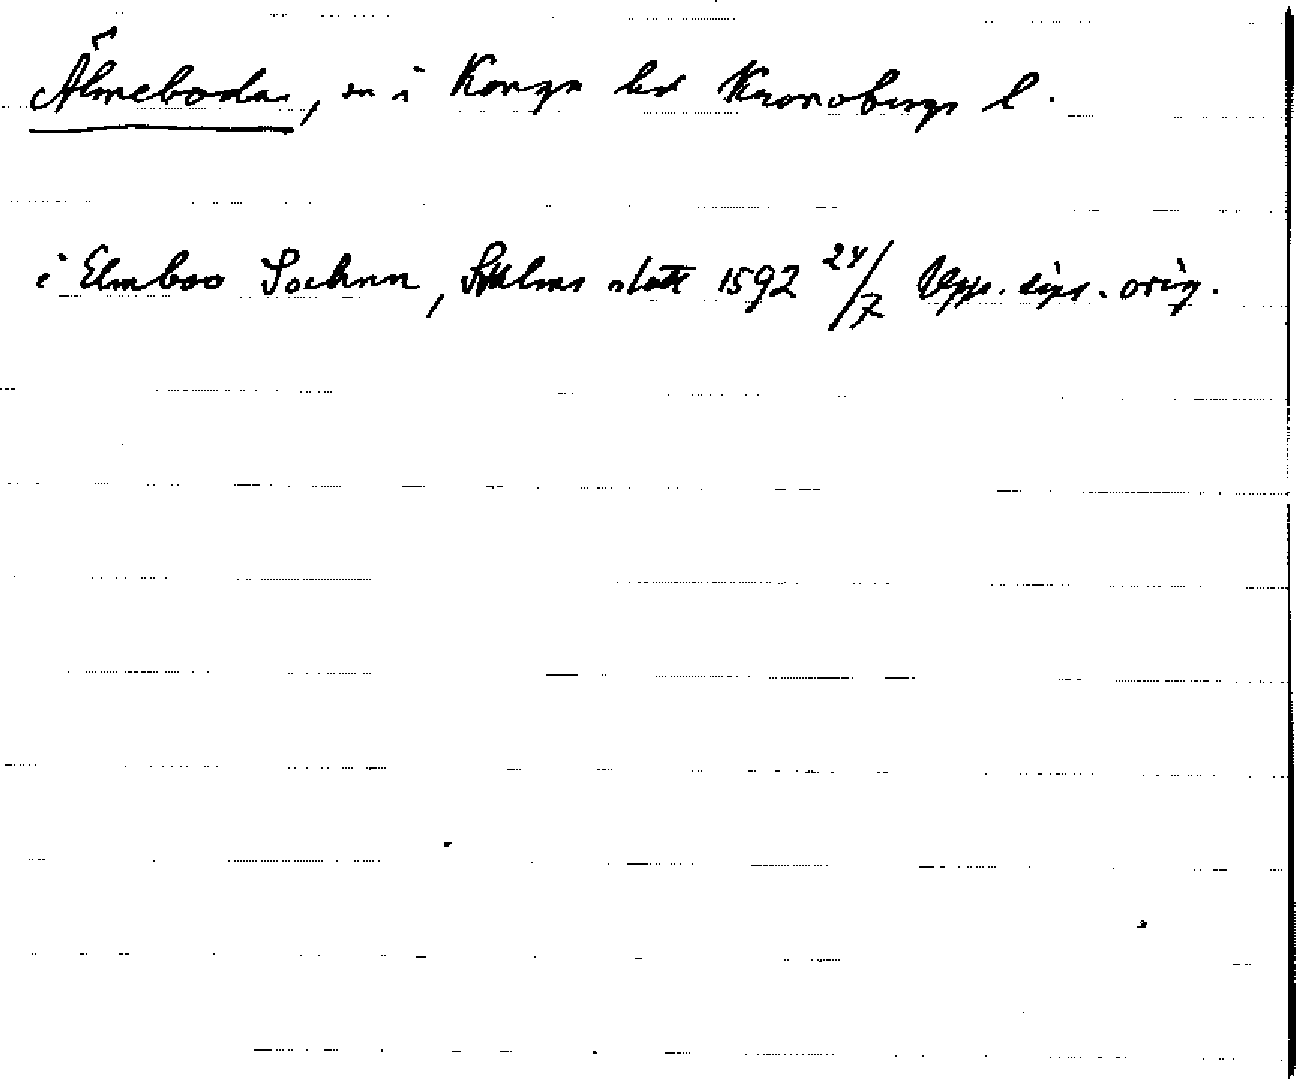 Älmeboda, sn i Konga hd Kronobergs l.
i Elmboo Sochnn, Sthlms slott 1592 24/7 Upps. dipl. orig.